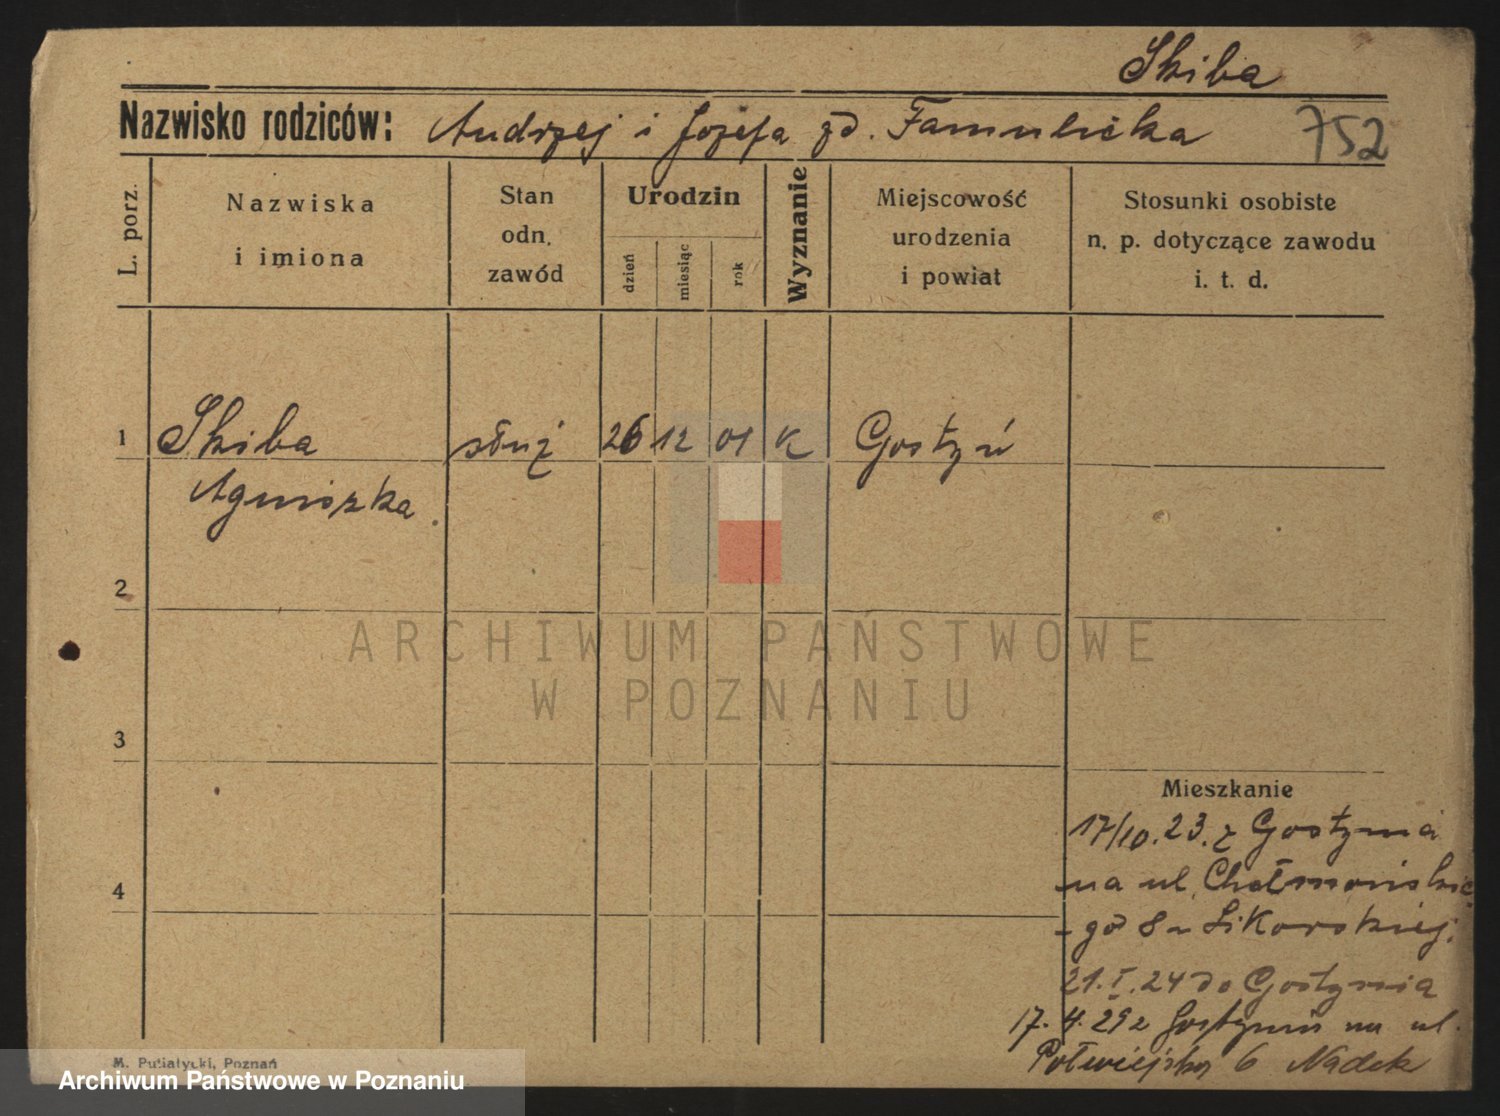 Skiba
Nazwisko rodziców: Andrzej i Józefa zd. Famulicka 752
L. porz.
Nazwiska
i imiona
Stan
odn.
zawód
Urodzin
dzień
miesiąc
rok
Wyznanie
Miejscowość
urodzenia
i powiat
Stosunki osobiste
n. p. dotyczące zawodu
i. t. d.
1 Skiba służ 26 12 01 K Gostyń
Agniszka.
2
3
4
Mieszkanie
17/10.23. z Gostynia
na ul. Chełmońskie
-go 8 u Sikorskiej.
21.I.24 do Gostynia
17. 4. 29 z Gostynia na ul.
Półwiejską 6 Nadek
M. Putiatycki, Poznań
ARCHIWUM PAŃSTWOWE
W POZNANIU
Archiwum Państwowe w Poznaniu